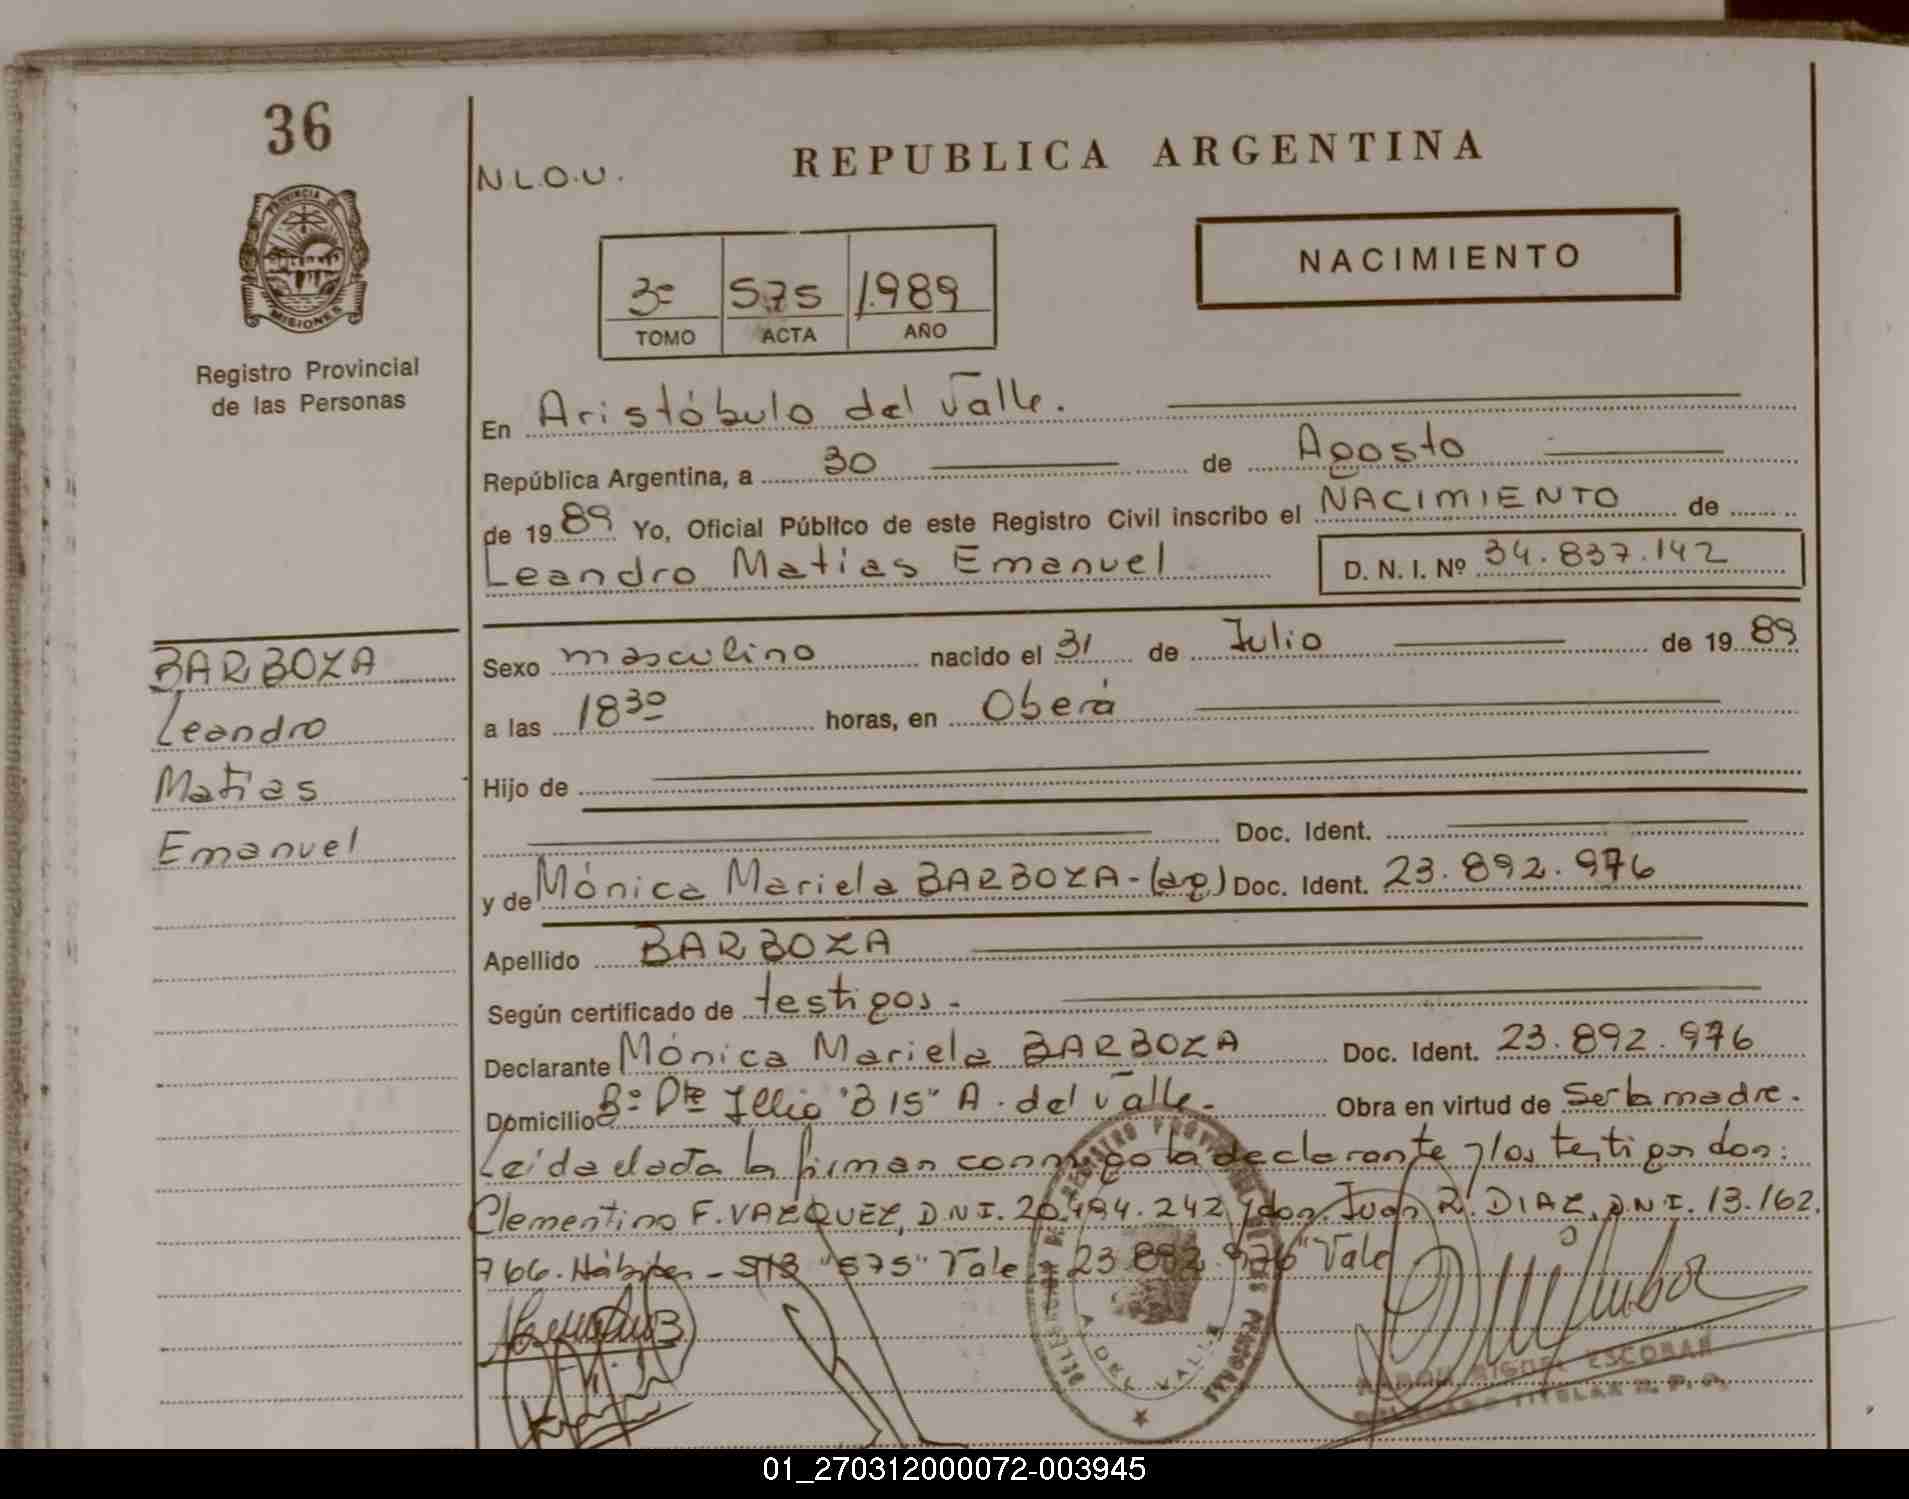 36
PROVINCIA DE
MISIONES
Registro Provincial
de las Personas
BARBOZA
Leandro
Matías
Emanuel
N.L.O.U.
REPUBLICA ARGENTINA
NACIMIENTO
3º 575 1.989
TOMO ACTA AÑO
En Aristóbulo del Valle.
República Argentina, a 30 de Agosto
de 19 89 Yo, Oficial Público de este Registro Civil inscribo el NACIMIENTO de
Leandro Matías Emanuel D. N. I. Nº 34.837.142
Sexo masculino nacido el 31 de Julio de 19 89
a las 18 30 horas, en Oberá
Hijo de
Doc. Ident.
y de Mónica Mariela BARBOZA-(ag) Doc. Ident. 23.892.976
Apellido BARBOZA
Según certificado de testigos-
Declarante Mónica Mariela BARBOZA Doc. Ident. 23.892.976
Domicilio Bº Pte Illia "B 15" A. del Valle- Obra en virtud de Ser la madre.
Leída el acta la firman conmigo la declarante y los testigos don:
Clementino F. VAZQUEZ, D.N.I. 20.494.242 y don Juan R. DIAZ, D.N.I. 13.162.
766. Hábiles - S/B "575" Vale "23.892.976" Vale
A. DEL VALLE
RAMON MIGUEL ESCOBAR
DELEGADO TITULAR R. P. P.
01_270312000072-003945